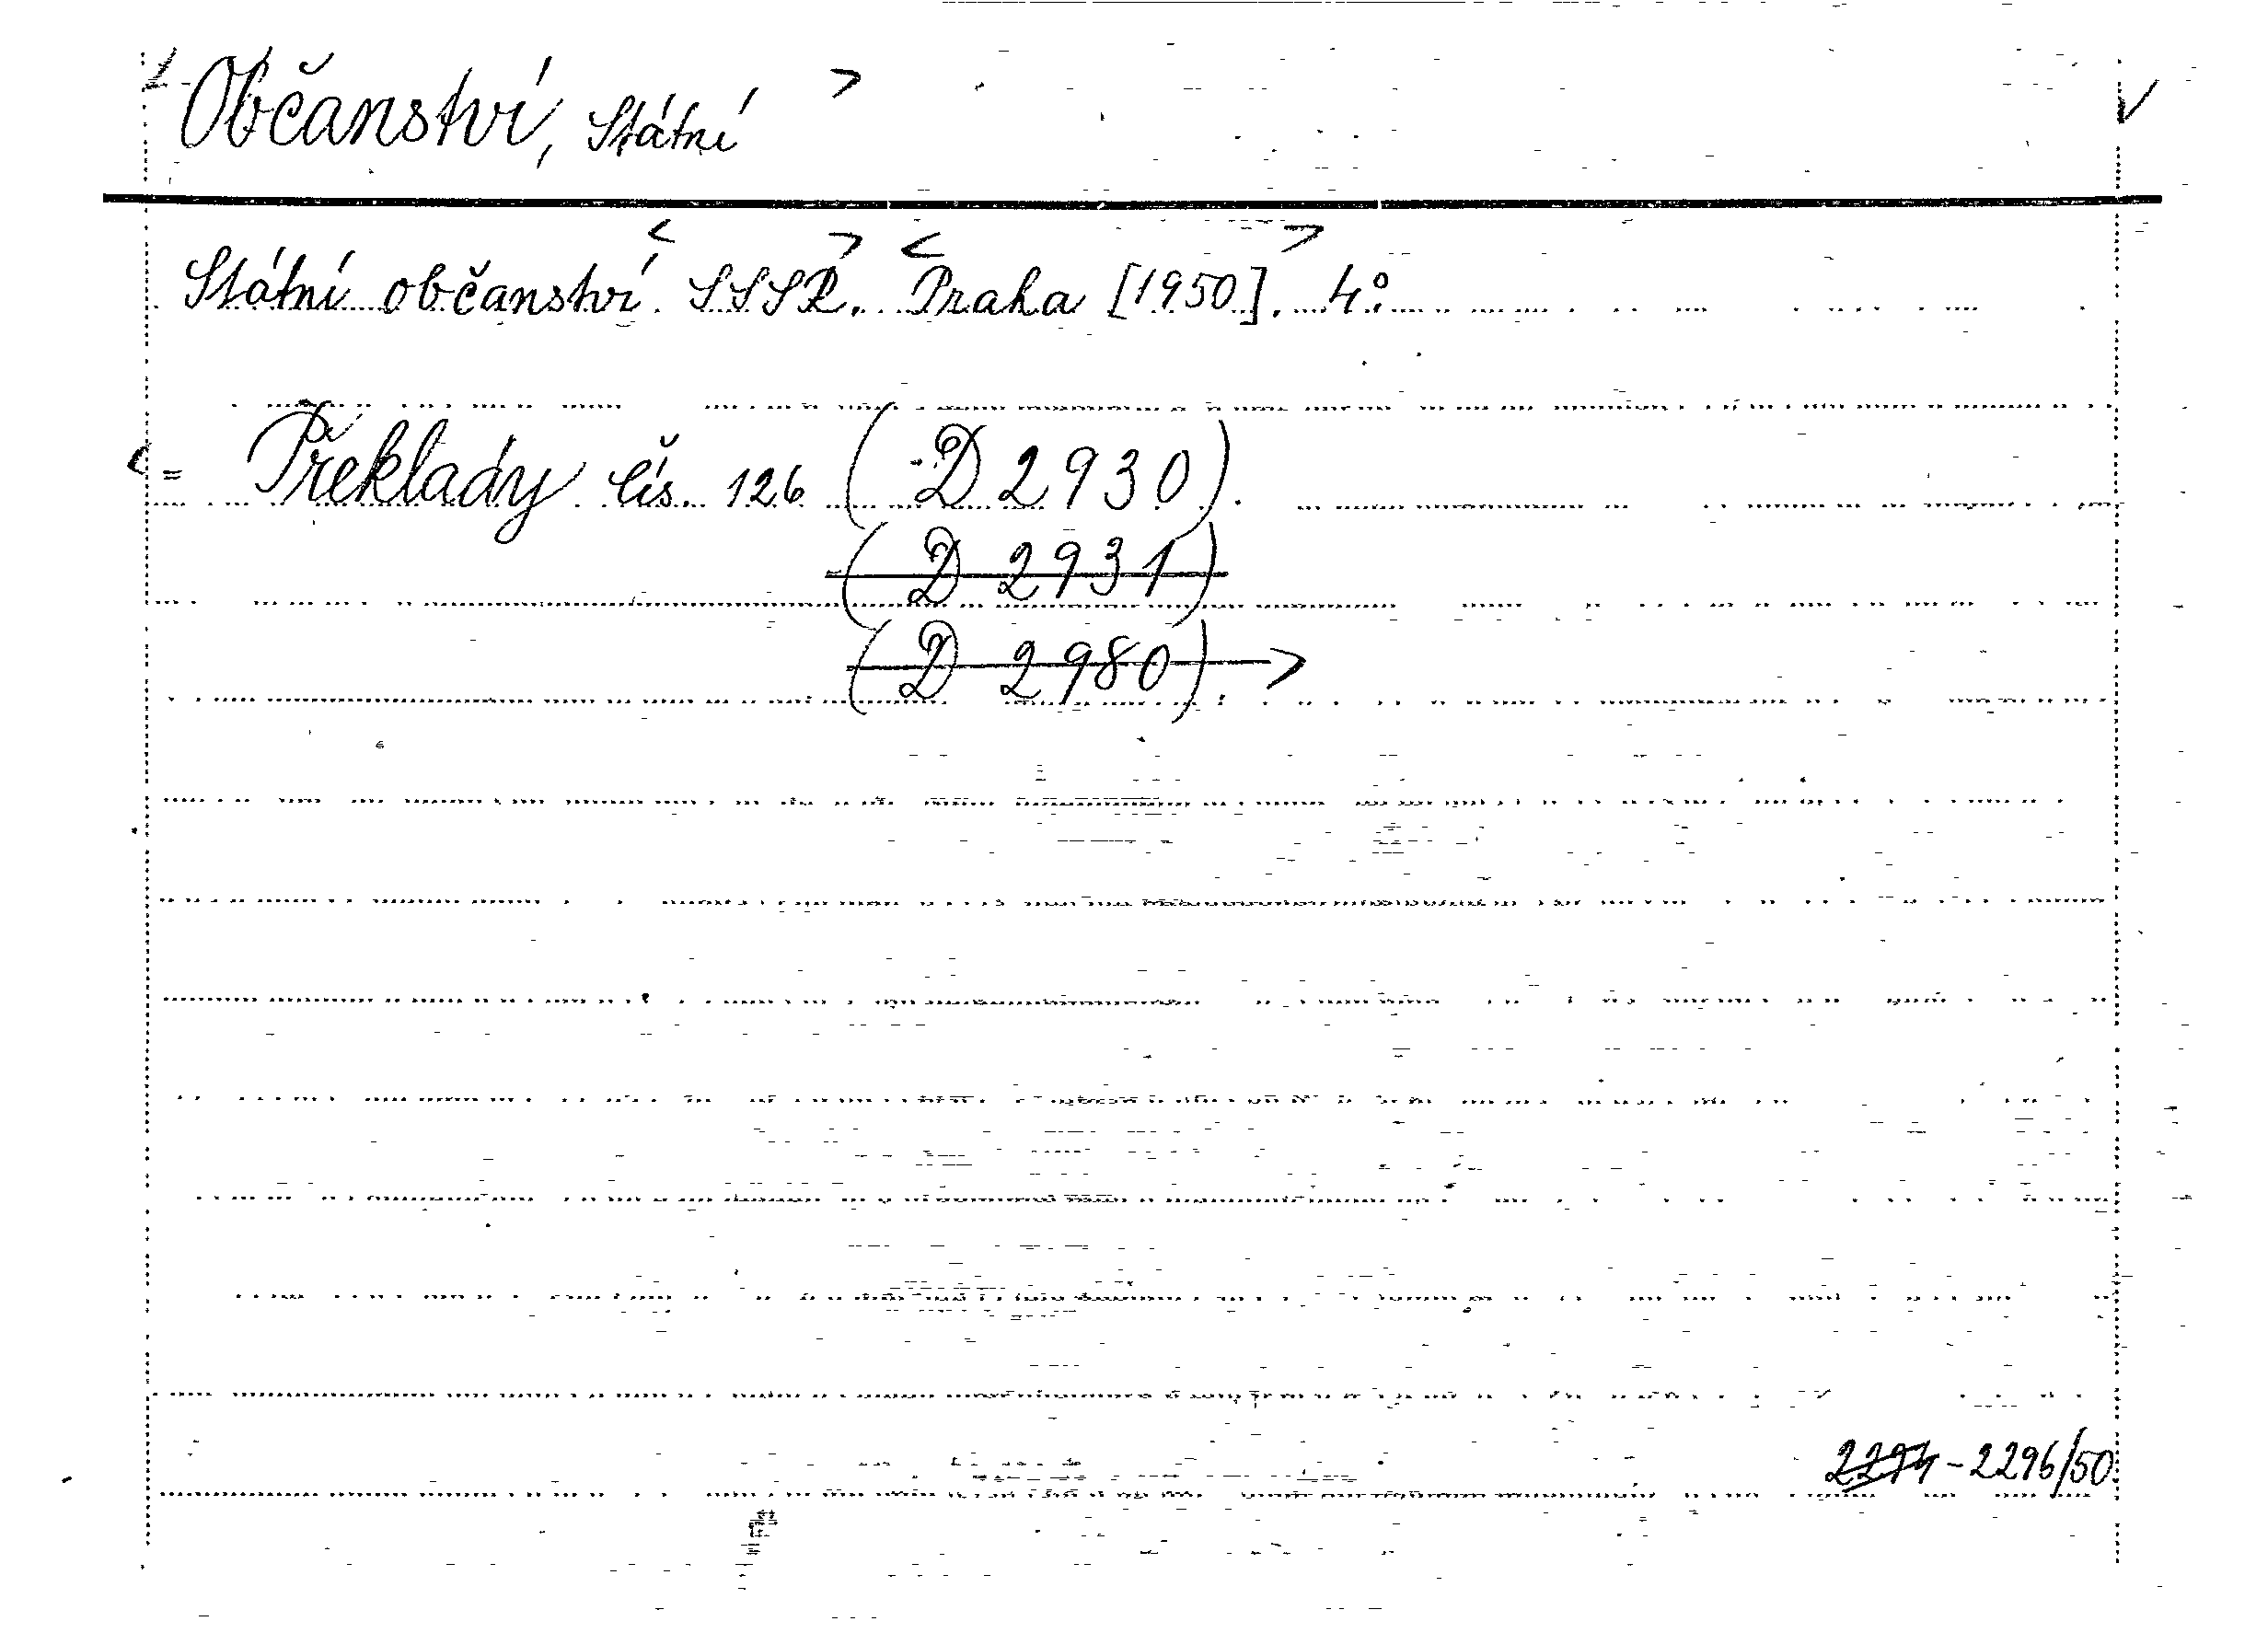 Občanství, Státní
Státní občanství SSSR. Praha [1950]. 4°.
= Překlady čís. 126 (D 2930).
(D 2931)
(D 2980).
2294-2296/50